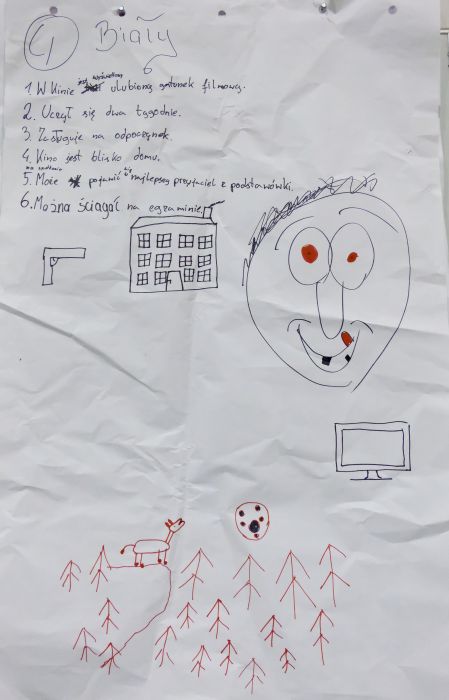 4 Biały
1. W Kinie jest wyświetlony ulubiony gatunek filmowy.
2. Uczył się dwa tygodnie.
3. Zasługuje na odpoczynek.
4. Kino jest blisko domu.
5. Może się pojawić najlepszy przyjaciel z podstawówki.
6. Można ściągać na egzaminie.